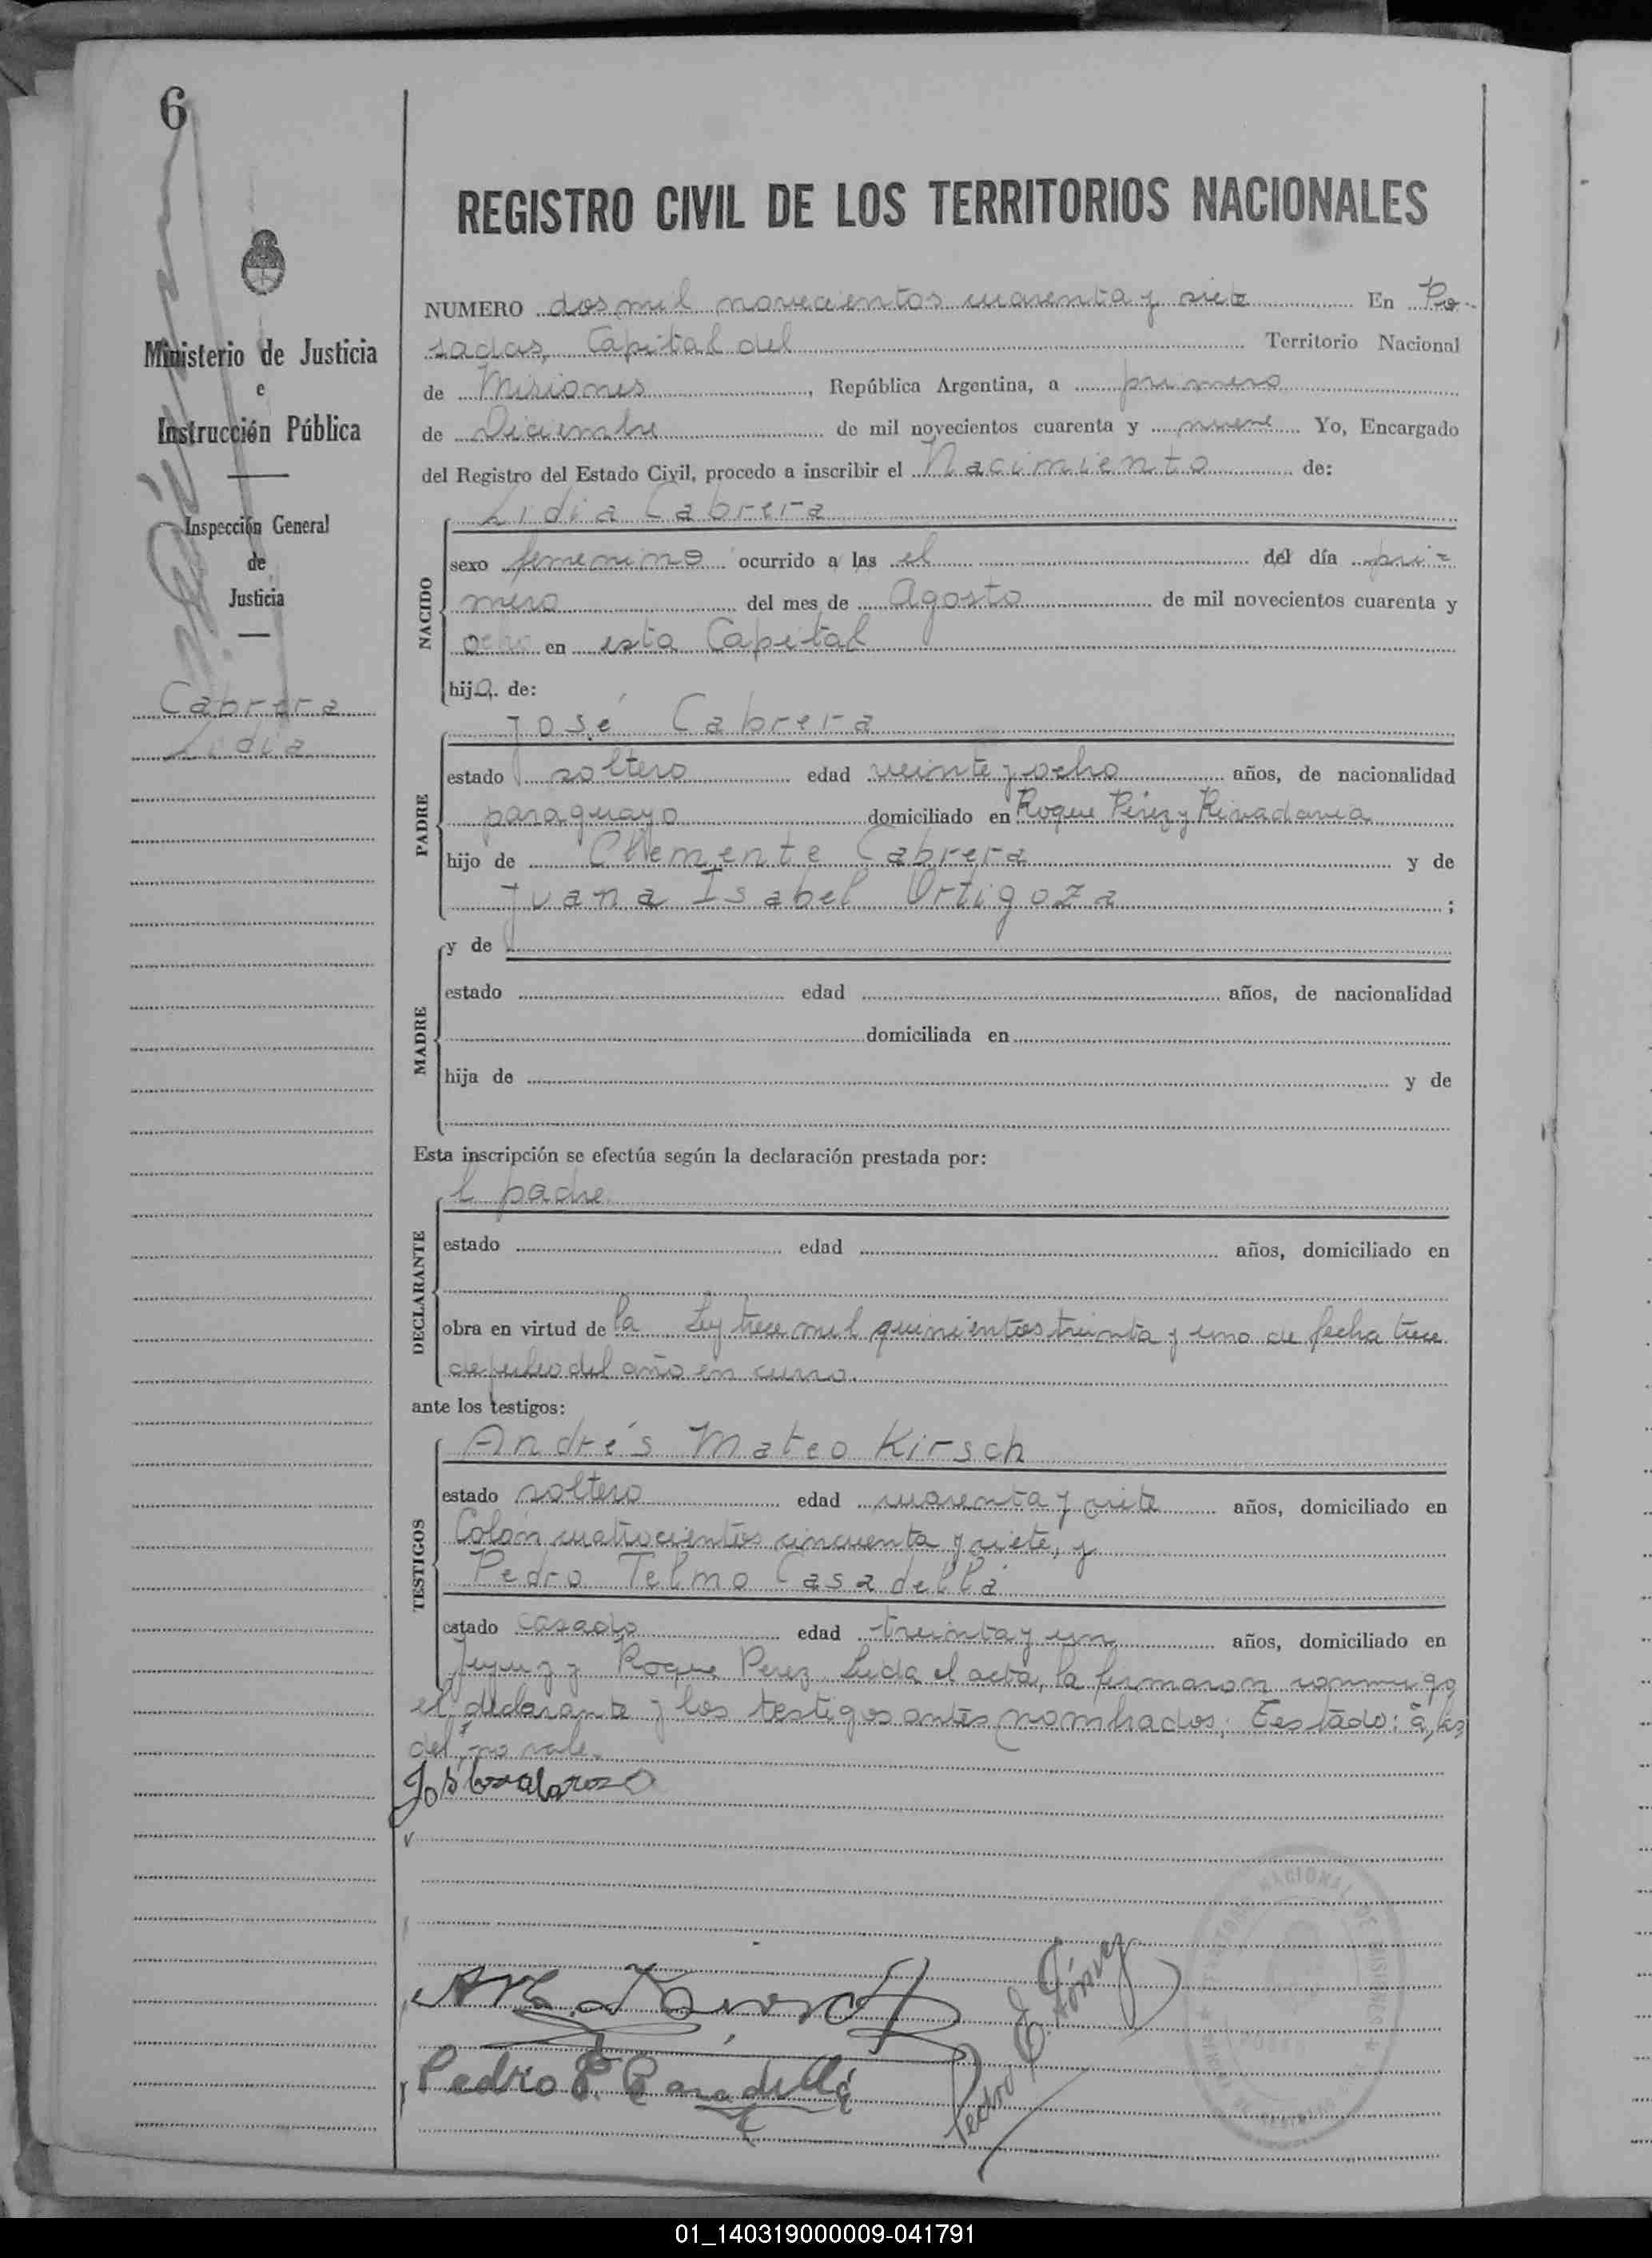 6
REGISTRO CIVIL DE LOS TERRITORIOS NACIONALES
Ministerio de Justicia
e
Instrucción Pública
Inspección General
de
Justicia
Cabrera
Lidia
NUMERO dos mil novecientos cuarenta y siete En Po-
sadas, Capital del Territorio Nacional
de Misiones, República Argentina, a primero
de Diciembre de mil novecientos cuarenta y nueve Yo, Encargado
del Registro del Estado Civil, procedo a inscribir el Nacimiento de:
NACIDO
Lidia Cabrera
sexo femenino ocurrido a las el del día pri=
mero del mes de Agosto de mil novecientos cuarenta y
ocho en esta Capital
hija. de:
PADRE
José Cabrera
estado soltero edad veinte y ocho años, de nacionalidad
paraguayo domiciliado en Roque Pérez y Rivadavia
hijo de Clemente Cabrera y de
Juana Isabel Ortigoza ;
MADRE
y de
estado edad años, de nacionalidad
domiciliada en
hija de y de
Esta inscripción se efectúa según la declaración prestada por:
DECLARANTE
l padre
estado edad años, domiciliado en
obra en virtud de la Ley trece mil quinientos treinta y uno de fecha trece
de julio del año en curso.
ante los testigos:
TESTIGOS
Andrés Mateo Kirsch
estado soltero edad cuarenta y siete años, domiciliado en
Colón cuatrocientos cincuenta y siete, y
Pedro Telmo Casadellá
estado casado edad treinta y un años, domiciliado en
Jujuy y Roque Perez. Leida el acta, la firmaron conmigo
el declarante y los testigos antes nombrados. Testado: a las
del, no vale.
Pedro E. Gómez
Pedro T. Casadellá
01_140319000009-041791